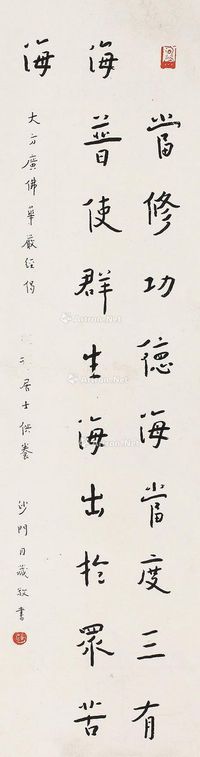 當修功德海當度三有
海普使群生海出於眾苦
海
大方廣佛華嚴經偈
居士供養
沙門月臂敬書